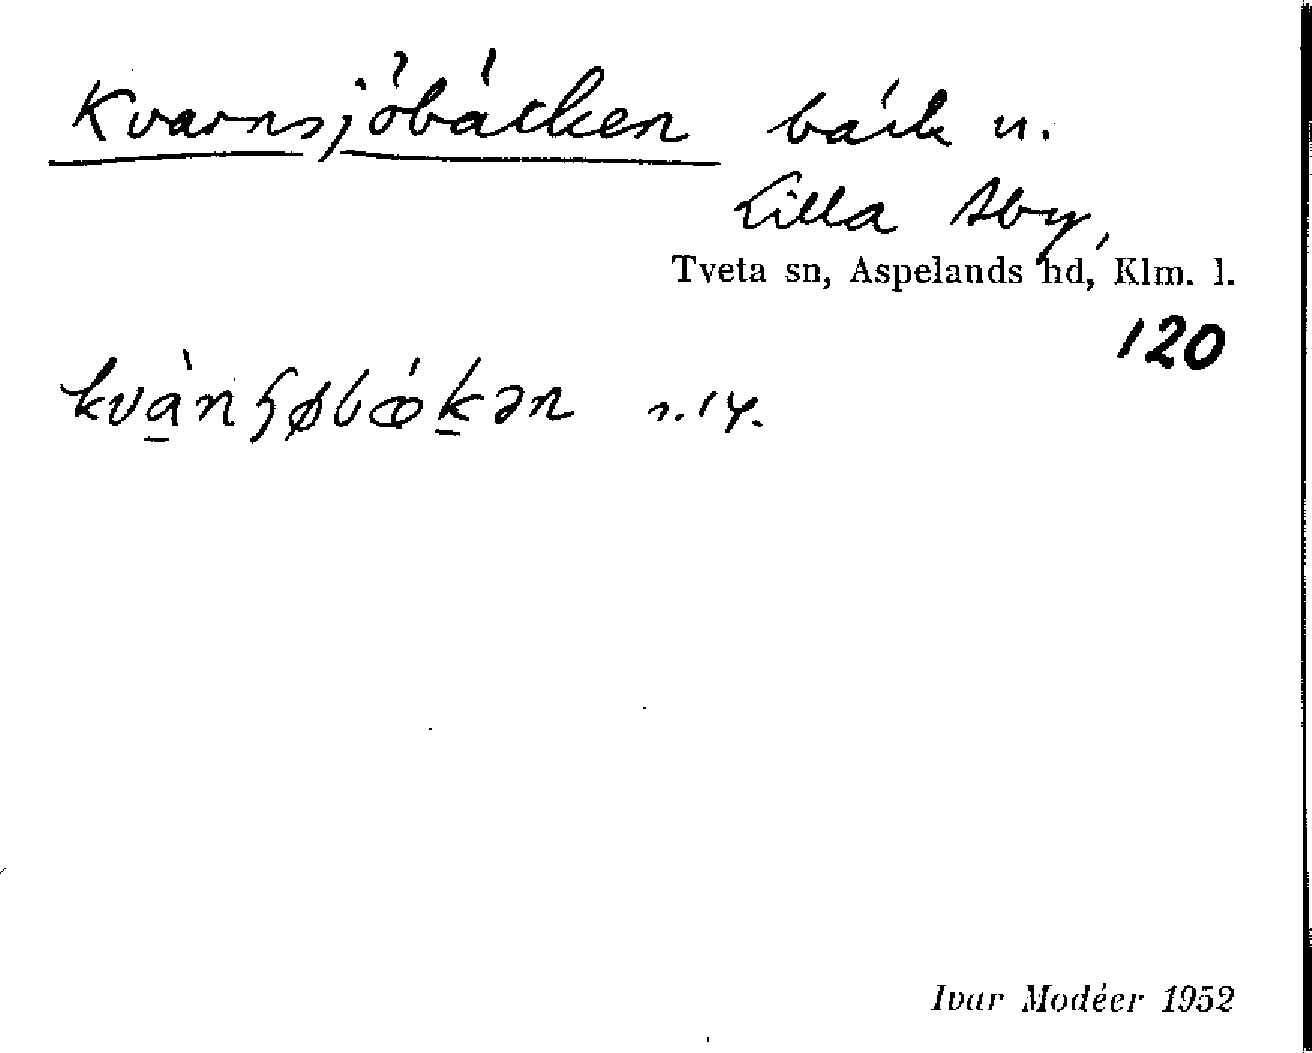 Kvarnsjöbäcken bäck u.
Lilla Åby,
Tveta sn, Aspelands hd, Klm. l.
120
Ivar Modéer 1952